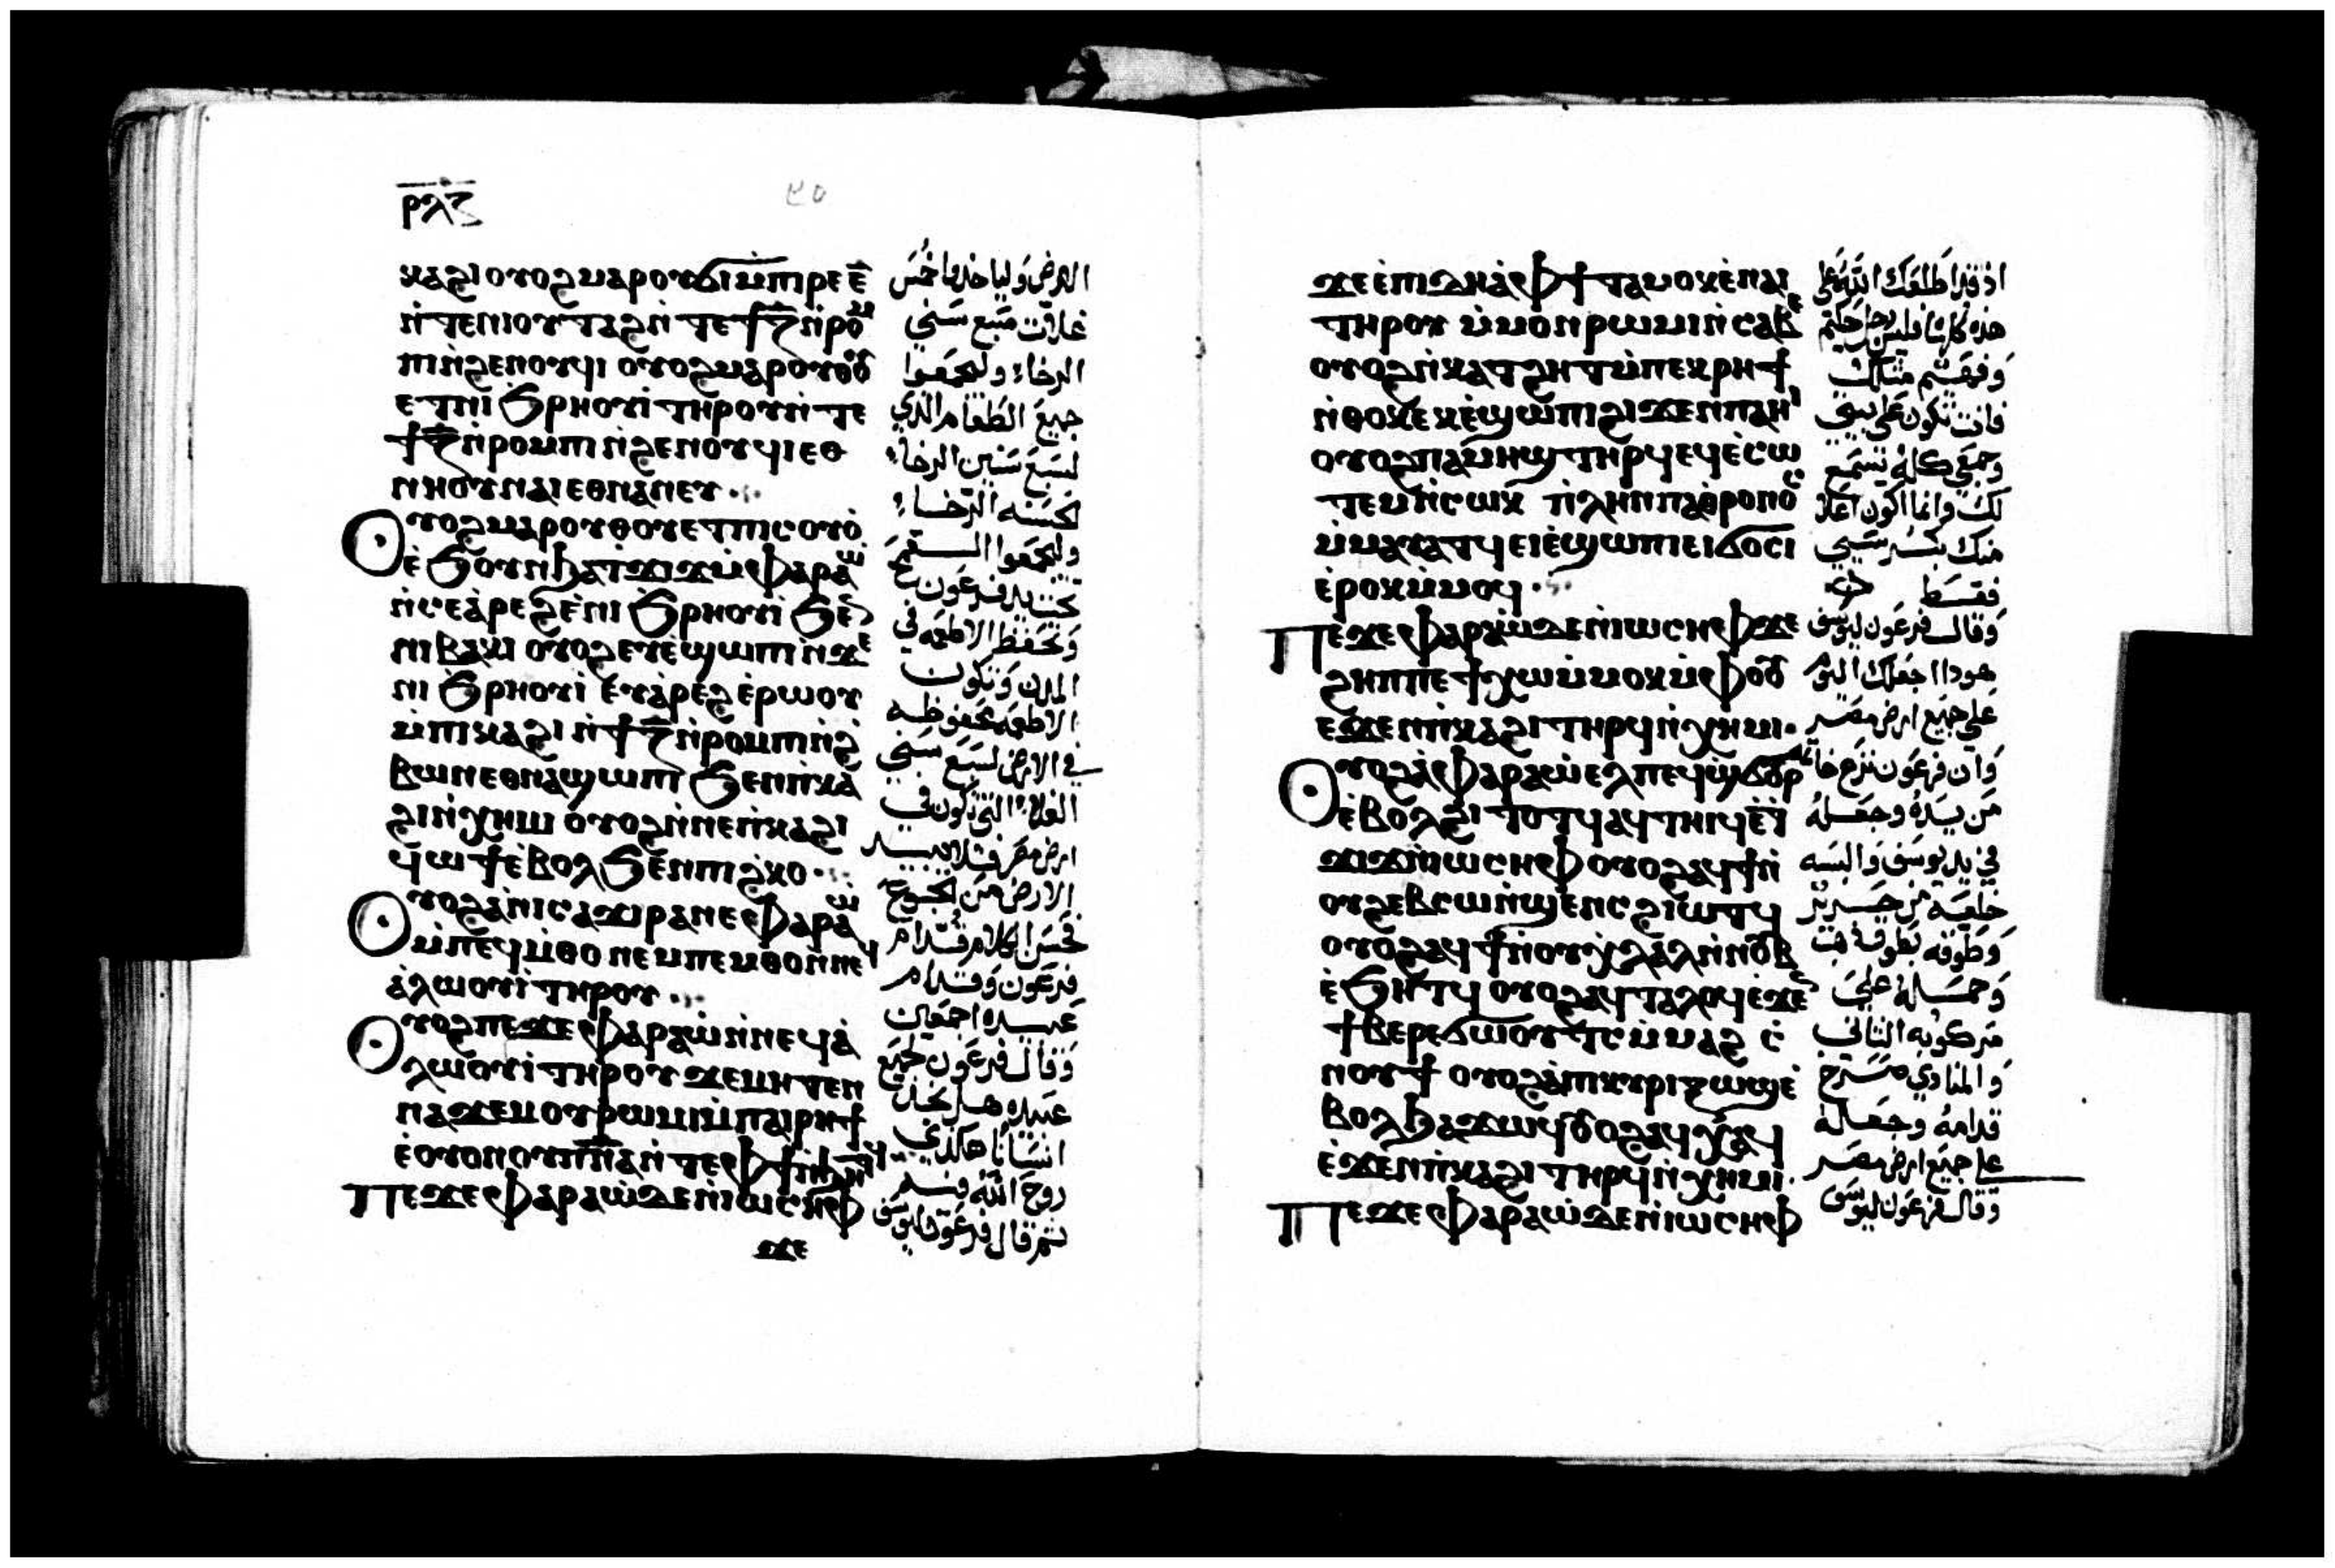 ⲣⲗⲍ
ⲕⲁϩⲓ ⲟⲩⲟϩ ⲙⲁⲣⲟⲩϭⲓ ⲙ̇ⲡⲓⲣⲉ ⲉ̅
ⲛ̇ⲧⲉ ⲛⲓⲟⲩⲧⲁϩ ⲛ̇ⲧⲉ ϯⲍ̅ ⲛ̇ⲣⲟⲙ
ⲡⲓ ⲛ̇ϩⲉⲛⲟⲩϥⲓ ⲟⲩⲟϩ ⲙⲁⲣⲟⲩⲑⲟⲩ
ⲉⲧ ⲛⲓ ϧⲣⲏⲟⲩⲓ̇ ⲧⲏⲣⲟⲩ ⲛ̇ⲧⲉ
ϯⲍ̅ ⲛ̇ⲣⲟⲙⲡⲓ ⲛ̇ϩⲉⲛⲟⲩϥⲓ ⲉⲑ
ⲛⲏⲟⲩ ⲛⲁⲓ ⲉⲑⲛⲁⲛⲉⲩ
ⲟⲩⲟϩ ⲙⲁⲣⲟⲩⲑⲟⲩⲉⲧ ⲡⲓⲥⲟⲩⲟ̇
ⲉ̇ϧⲟⲩⲛ ϧⲁⲧ̇ϫⲓϫ ⲙ̇ⲫⲁⲣⲁⲱ
ⲛ̇ⲥⲉⲁ̇ⲣⲉϩ ⲉ̇ⲛⲓ ϧⲣⲏⲟⲩⲓ̇ ϧⲉⲛ
ⲛⲓⲃⲁⲕⲓ ⲟⲩⲟϩ ⲉⲩⲉ̇ϣⲱⲡⲓ ⲛ̇ϫⲉ
ⲛⲓ ϧⲣⲏⲟⲩⲓ̇ ⲉⲩⲁ̇ⲣⲉϩ ⲉ̇ⲣⲱⲟⲩ
ⲙ̇ⲡⲓⲕⲁϩⲓ ⲛ̇ϯⲍ̅ ⲛ̇ⲣⲟⲙⲡⲓ ⲛ̇ϩ
ⲃⲱⲛ ⲉⲑⲛⲁϣⲱⲡⲓ ϧⲉⲛ ⲡ̇ⲕⲁ
ϩⲓ ⲛ̇ⲭⲏⲙⲓ ⲟⲩⲟϩ ⲛ̇ⲛⲉ ⲡ̇ⲕⲁϩⲓ
ϥⲱϯ ⲉ̇ⲃⲟⲗ ϧⲉⲛ ⲡⲓϩⲕⲟ
ⲟⲩⲟϩ ⲁ̇ⲛⲓⲥⲁϫⲓ ⲣⲁⲛⲉ ⲫⲁⲣⲁⲱ
ⲙ̇ⲡⲉϥⲙ̇ⲑⲟ ⲛⲉⲙ ⲡⲉⲙⲑⲟ ⲛ̇ⲛⲉϥ
ⲁ̇ⲗⲱⲟⲩⲓ̇ ⲧⲏⲣⲟⲩ
ⲟⲩⲟϩ ⲡⲉϫⲉ ⲫⲁⲣⲁⲱ ⲛ̇ⲛⲉϥⲁ̇
ⲗⲱⲟⲩⲓ̇ ⲧⲏⲣⲟⲩ ϫⲉ ⲙⲏ ⲧⲉⲛ
ⲛⲁϫⲉⲙ ⲟⲩⲣⲱⲙⲓ ⲙ̇ⲡⲁⲓⲣⲏϯ
ⲉ̇ⲟⲩⲟⲛ ⲟⲩⲡ̅ⲛ̅ⲁ̅ ⲛ̇ⲧⲉ ⲫϯ ⲛ̇ϧⲏⲧϥ
ⲡⲉϫⲉ ⲫⲁⲣⲁⲱ ⲇⲉ ⲛ̇ⲓⲱⲥⲏⲫ
ϫⲉ
الارض وليا خدوا خمس
غلات سبع سني
الرخاء وليجمعوا
جميع الطعام الذي
لسبع سنين الرخاء
الحسنه الرخاء
وليجمعوا
تحت يد فرعون
وتحفظ الاطعمه في
المدن وتكون
الاطعمه محفوظه
في الارض لسبع سني
الغلاء التي تكون في
ارض مصر فلا تبيد
الارض من الجوع
فحسن الكلام قدام
فرعون وقدام
عبيده اجمعين
وقال فرعون لجميع
عبيده هل نجد
انسانا هكذي
روح الله فيه
ثم قال فرعون ليوسف
ϫⲉ ⲉ̇ⲡⲓⲇⲏ ⲁ̇ⲫϯ ⲧⲁⲙⲟⲕ ⲉ̇ⲛⲁⲓ
ⲧⲏⲣⲟⲩ ⲙ̇ⲙⲟⲛ ⲣⲱⲙⲓ ⲛ̇ⲥⲁⲃⲉ
ⲟⲩⲟϩ ⲛ̇ⲕⲁⲧϩⲏⲧ ⲙ̇ⲡⲉⲕⲣⲏϯ
ⲛ̇ⲑⲟⲕ ⲉⲕⲉ̇ϣⲱⲡⲓ ϩⲓϫⲉⲛ ⲡⲁⲏⲓ
ⲟⲩⲟϩ ⲡⲁⲙⲏϣ ⲧⲏⲣϥ ⲉϥⲉ̇ⲥⲱ
ⲧⲉⲙ ⲛ̇ⲥⲱⲕ ⲡⲗⲏⲛ ⲡⲁⲑⲣⲟⲛⲟⲥ
ⲙ̇ⲙⲁⲩⲁⲧϥ ⲉⲓⲉ̇ϣⲱⲡⲓ ⲉⲓϭⲟⲥⲓ
ⲉ̇ⲣⲟⲕ ⲙ̇ⲙⲟϥ
ⲡⲉϫⲉ ⲫⲁⲣⲁⲱ ⲇⲉ ⲛ̇ⲓⲱⲥⲏⲫ ϫⲉ
ϩⲏⲡⲡⲉ ϯⲭⲱ ⲙ̇ⲙⲟⲕ ⲙ̇ⲫⲟⲟⲩ
ⲉϫⲉⲛ ⲡ̇ⲕⲁϩⲓ ⲧⲏⲣϥ ⲛ̇ⲭⲏⲙⲓ
ⲟⲩⲟϩ ⲁ̇ⲫⲁⲣⲁⲱ ⲉⲗ ⲡⲉϥϣϭⲟⲩⲣ
ⲉ̇ⲃⲟⲗ ϩⲓ ⲧⲟⲧϥ ⲁϥⲧⲏⲓϥ ⲉ̇ⲧ̇
ϫⲓϫ ⲛ̇ⲓⲱⲥⲏⲫ ⲟⲩⲟϩ ⲁϥϯ ⲛ̇
ⲟⲩϩⲉⲃⲥⲱ ⲛ̇ϣⲉⲛⲥ ϩⲓⲱⲧϥ
ⲟⲩⲟϩ ⲁϥϯ ⲛ̇ⲟⲩⲭⲗⲁⲗ ⲛ̇ⲛⲟⲩⲃ
ⲉ̇ϧⲏⲧϥ ⲟⲩⲟϩ ⲁϥⲧⲁⲗⲟϥ ⲉ̇ϫⲉⲛ
ϯⲃⲉⲣⲉϭⲱⲟⲩⲧⲥ ⲙ̇ⲙⲁϩ ⲥ̇
ⲛⲟⲩϯ ⲟⲩⲟϩ ⲁ̇ⲡⲕⲩⲣⲓⲝ ⲱϣ ⲉ̇
ⲃⲟⲗ ϧⲁϫⲱϥ ⲟⲩⲟϩ ⲁϥⲭⲁϥ
ⲉ̇ϫⲉⲛ ⲡ̇ⲕⲁϩⲓ ⲧⲏⲣϥ ⲛ̇ⲭⲏⲙⲓ
ⲡⲉϫⲉ ⲫⲁⲣⲁⲱ ⲇⲉ ⲛ̇ⲓⲱⲥⲏⲫ
اذ قد اطلعك الله على
هذه كلها فليس رجل حكيم
وفهيم مثلك
فانت تكون على بيتي
وجمعي كله يسمع
لك وانما اكون اعلا
منك بكرسيي
فقط
وقال فرعون ليوسف
هوذا اجعلك اليوم
على جميع ارض مصر
وان فرعون نزع خاتمه
من يده وجعله
في يد يوسف والبسه
خلعه من حرير
وطوقه بطوق ذهب
وحمله على
مركوبه الثاني
والمنادي يصرخ
قدامه وجعله
على جميع ارض مصر
وقال فرعون ليوسف